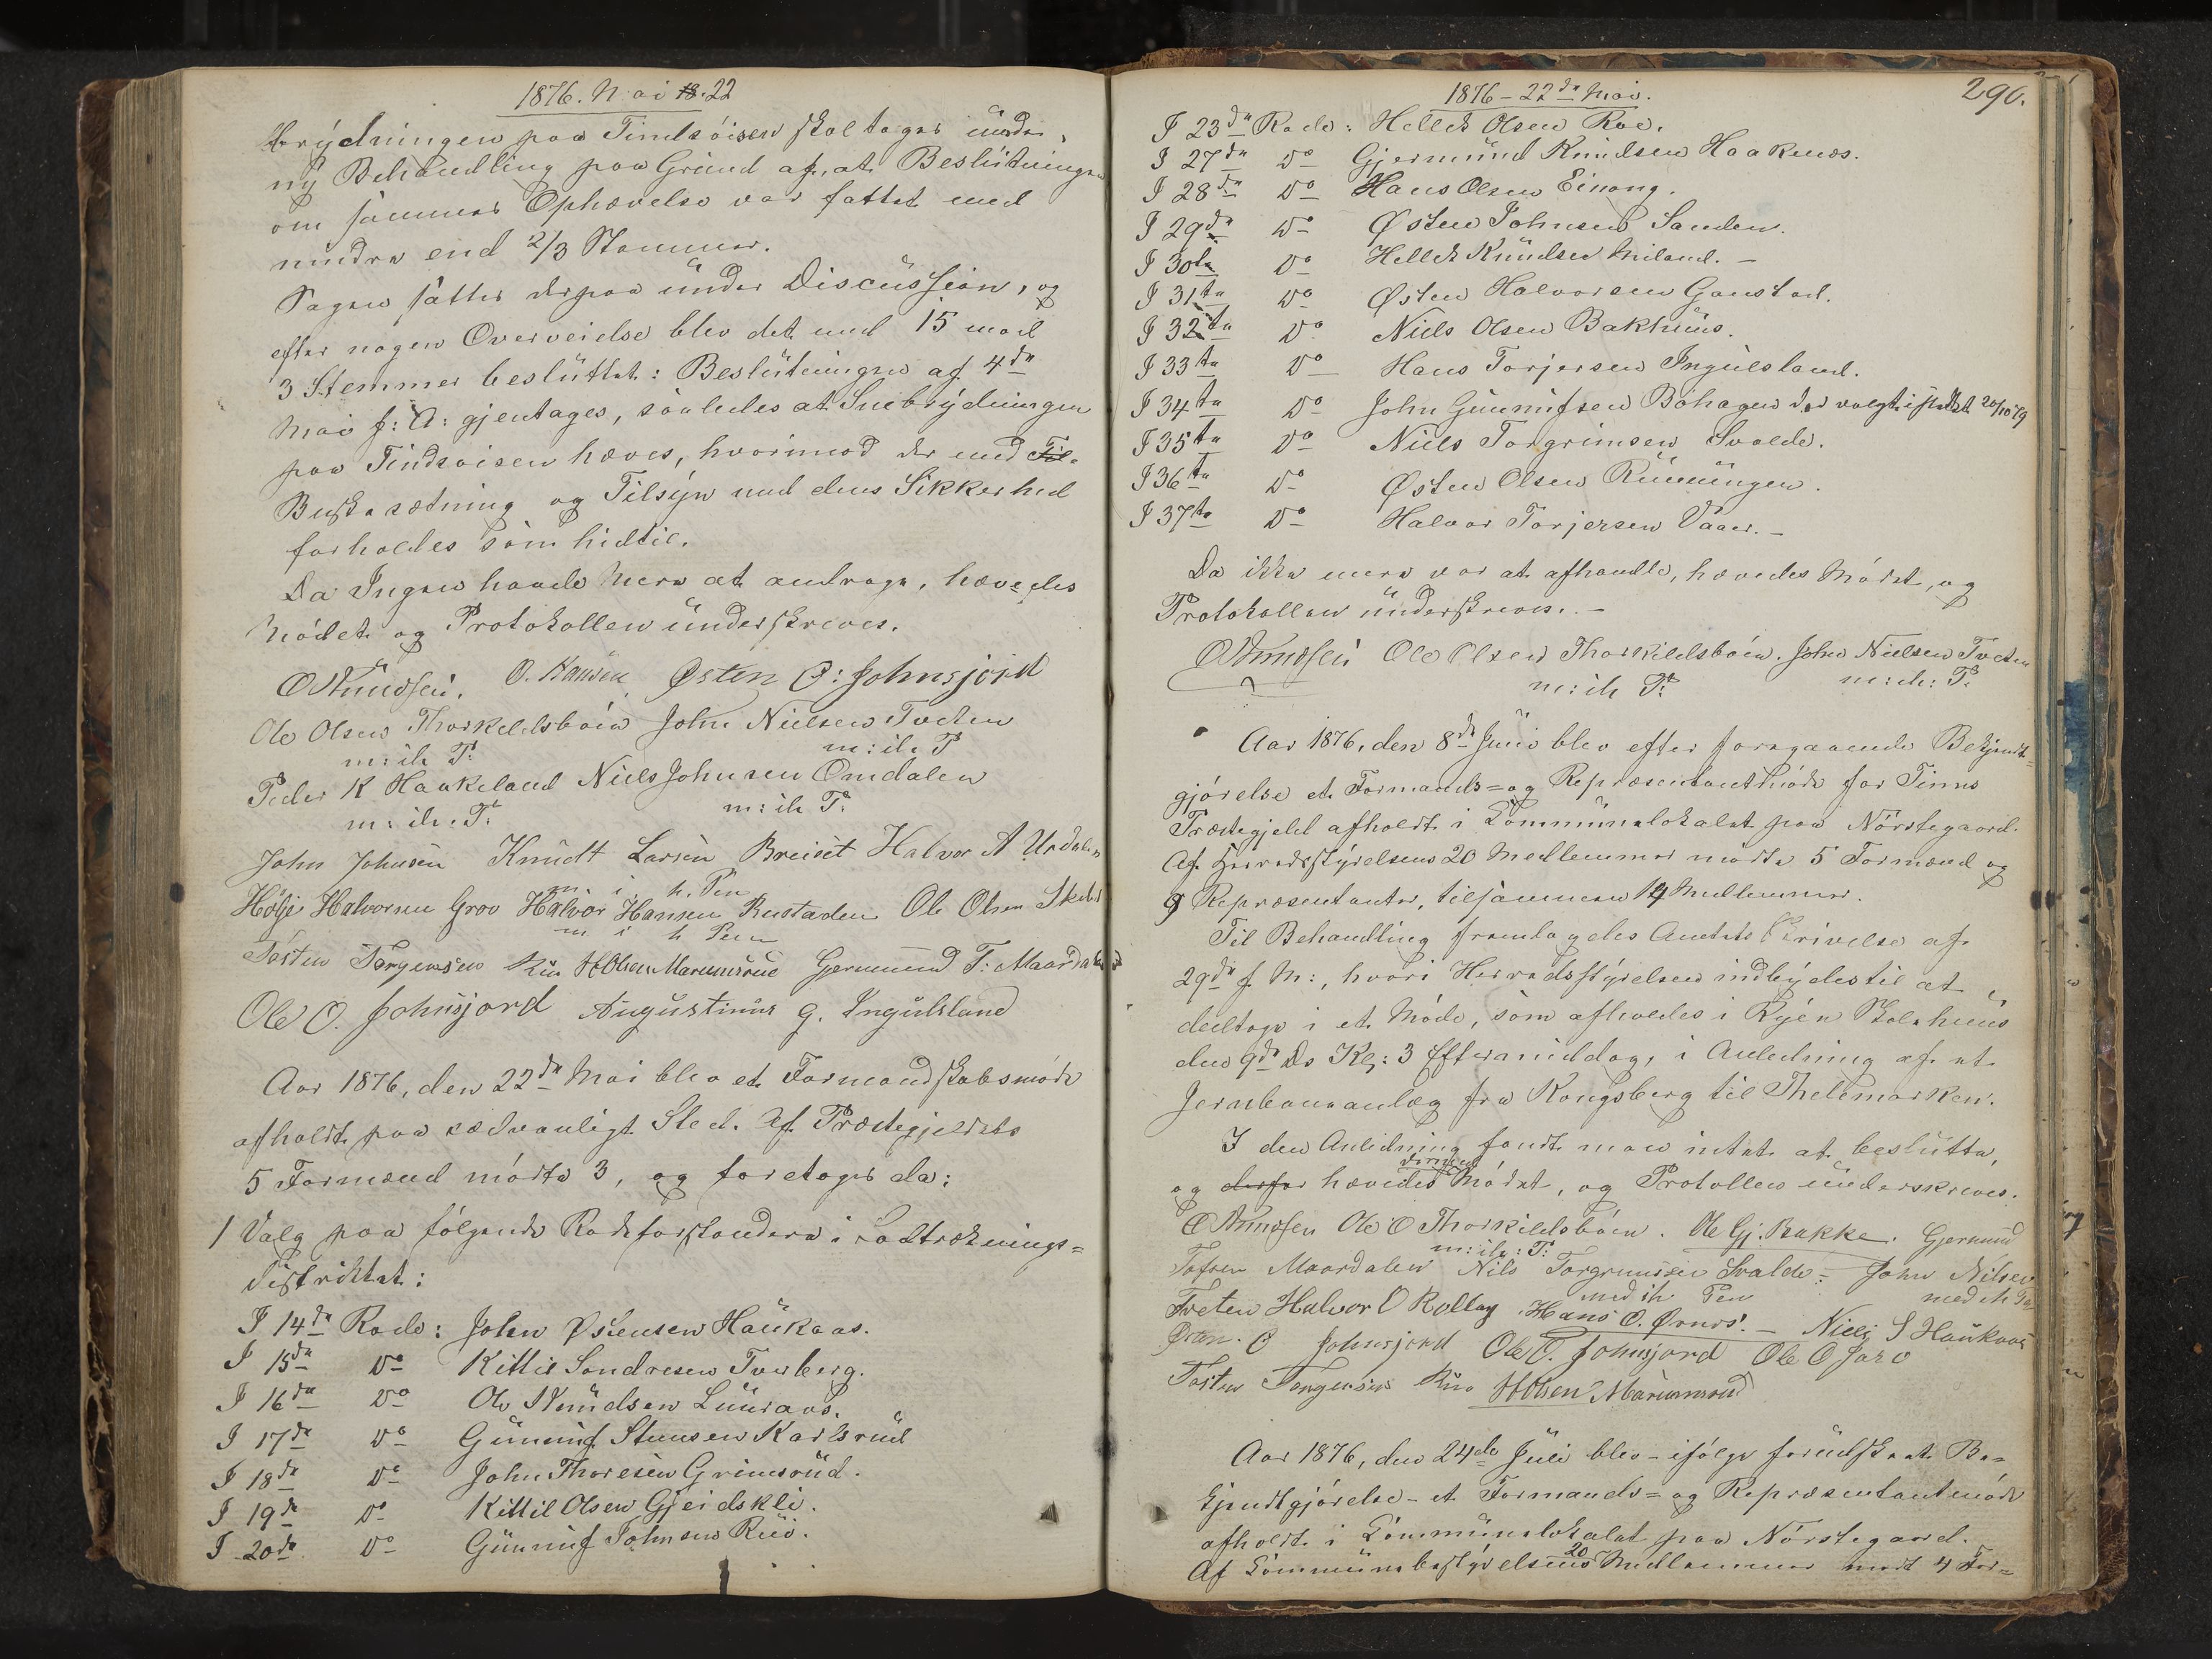 1876. Mai 18. 22
brydningen paa Tindsøisen skal tages under
ny Behandling paa Grund af, at Beslutningen
om sammes Ophævelse var fattet med
mindre end 2/3 Stemmer.
Sagen sattes derpaa under Discussion, og
efter nogen Overveielse blev det med 15 mod
3 Stemmer besluttet: Beslutningen af 4de
Mai f: A: gjentages, saaledes at Snebrydningen
paa Tindsøisen hæves, hvorimod der med Til-
Buskesætning og Tilsyn med dens Sikkerhed
forholdes som hidtil.
Da Ingen havde mere at andrage, hævedes
Mødet og Protokollen underskreves.
O Amundsen. O. Hansen Østen O: Johnsjord
Ole Olsen Thorkeldsbøen John Nielsen Tveten
m: ih P: m: ih. P
Peder K Haakeland Niels Johnsen Omdalen
m: ih. P: m: ih P:
John Johnsen Knudt Larsen Breiset Halvor A Urdalen
m i h. Pen
Hølje Halvorsen Grov Halvor Hansen Rustaden Ole Olsen
m i h Pen
Tosten Torgersen Rue H Olsen Marumsrue Germund T: Maardalen
Ole O. Johnsjord Augustinus G. Ingulsland
Aar 1876, den 22de Mai blev et Formandskabsmøde
afholdt paa sædvanligt Sted. Af Præstegjeldets
5 Formænd mødte 3, og foretoges da:
1 Valg paa følgende Rodeforstandere i Lodtræknings-
distriktet:
I 14de Rode: John Østensen Haukaas.
I 15de Do Kittil Sondresen Tverberg.
I 16de Do Ole Knudsen Luraas.
I 17de Do Gunnuf Steensen Karlsrud
I 18de Do John Thoresen Grimsrud.
I 19de Do Kittil Olsen Gjeidskli.
I 20de Do Gunnuf Johnsen Rue.
1876 - 22de Mai.
290.
I 23de Rode: Hellek Olsen Roe.
I 27de Do Gjermund Knudsen Haakenæs.
I 28de Do Hans Olsen Einong.
I 29de Do Østen Johnsen Sanden.
I 30te Do Hellek Knudsen Miland. -
I 31te Do Østen Halvorsen Gaustad.
I 32te Do Niels Olsen Bakhuus.
I 33te Do Hans Torjersen Ingulsland.
I 34te Do John Gunnufsen Bøhagen død valgt istedet 20/10 79
I 35te Do Niels Torgrimsen Svalde.
I 36te Do Østen Olsen Runningen.
I 37te Do Halvor Torjersen Vaaer. -
Da ikke mere var at afhandle, hævedes Mødet, og
Protokollen underskreves. -
O Amundsen Ole Olsen Thorkildsbøen. John Nielsen Tveten
m: ih P: m: ih: P.
Aar 1876, den 8de Juni blev efter foregaaende Bekjendt-
gjørelse et Formands- og Repræsentantmøde for Tinns
Præstegjeld afholdt i Communelokalet paa Nørstegaard.
Af Herredsstyrelsens 20 Medlemmer mødte 5 Formænd og
9 Repræsentanter, tilsammen 14 Medlemmer.
Til Behandling fremlagdes Amtets Skrivelse af
29de f. M:, hvori Herredsstyrelsen indbydes til at
deeltage i et Møde, som afholdes i Ryen Skolehuus
den 9de Ds Kl: 3 Eftermiddag, i Anledning af et
Jernbaneanlæg fra Kongsberg til Thelemarken.
I den Anledning fandt man intet at beslutte,
og derfor dermed hævedes Mødet, og Protollen underskreves.
O Amundsen Ole O Thorkildsbøen. Ole Gj. Bakke. Gjermund
m: ih: P:
Tofsen Maardalen Nils Torgrimsen Svalde: John Nilsen
med ih Pen med ih Pe
Tveten Halvor O Kollag Hans O. Ørnes. - Niels S Haukaas
Østen. O Johnsjord Ole O. Johnsjord Ole O Jaro
Tosten Torgersen Rue H Olsen Marumsrud
Aar 1876, den 24de Juli blev - ifølge forudskeet Be-
kjendtgjørelse - et Formands- og Repræsentantmøde
afholdt i Communelokalet paa Nørstegaard.
Af Communebestyrelsens 20 Medlemmer mødt 4 For-